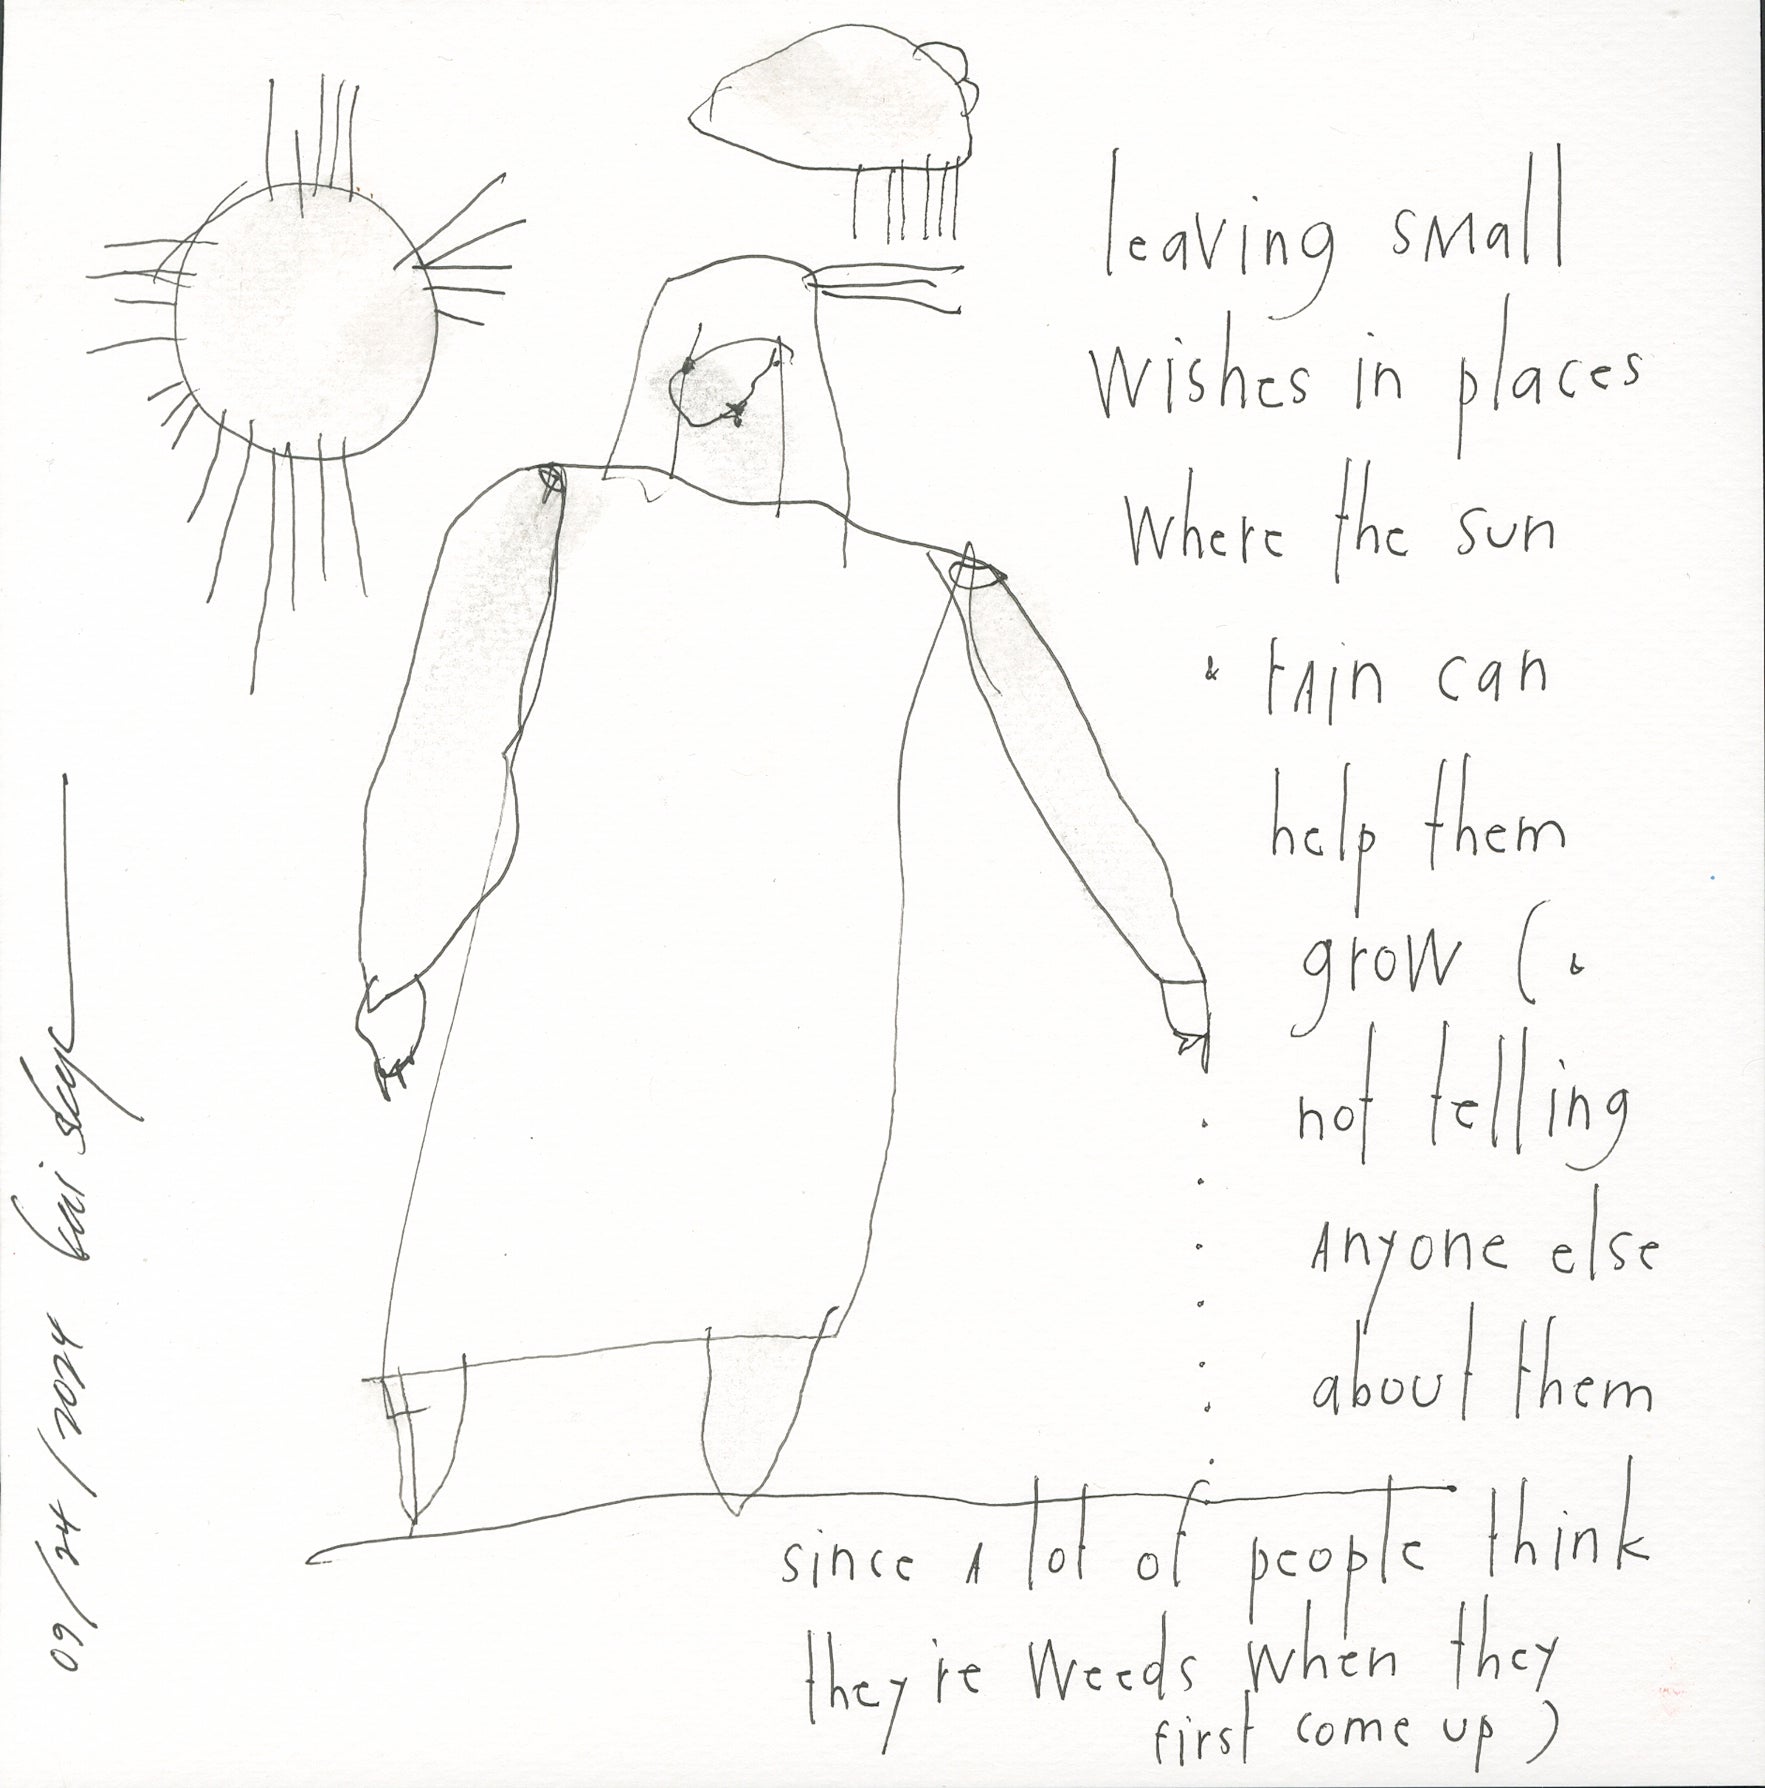 leaving small
wishes in places
where the sun
& rain can
help them
grow (&
not telling
anyone else
about them
since a lot of people think
they're weeds when they
first come up)
09/24/2024 kai skye